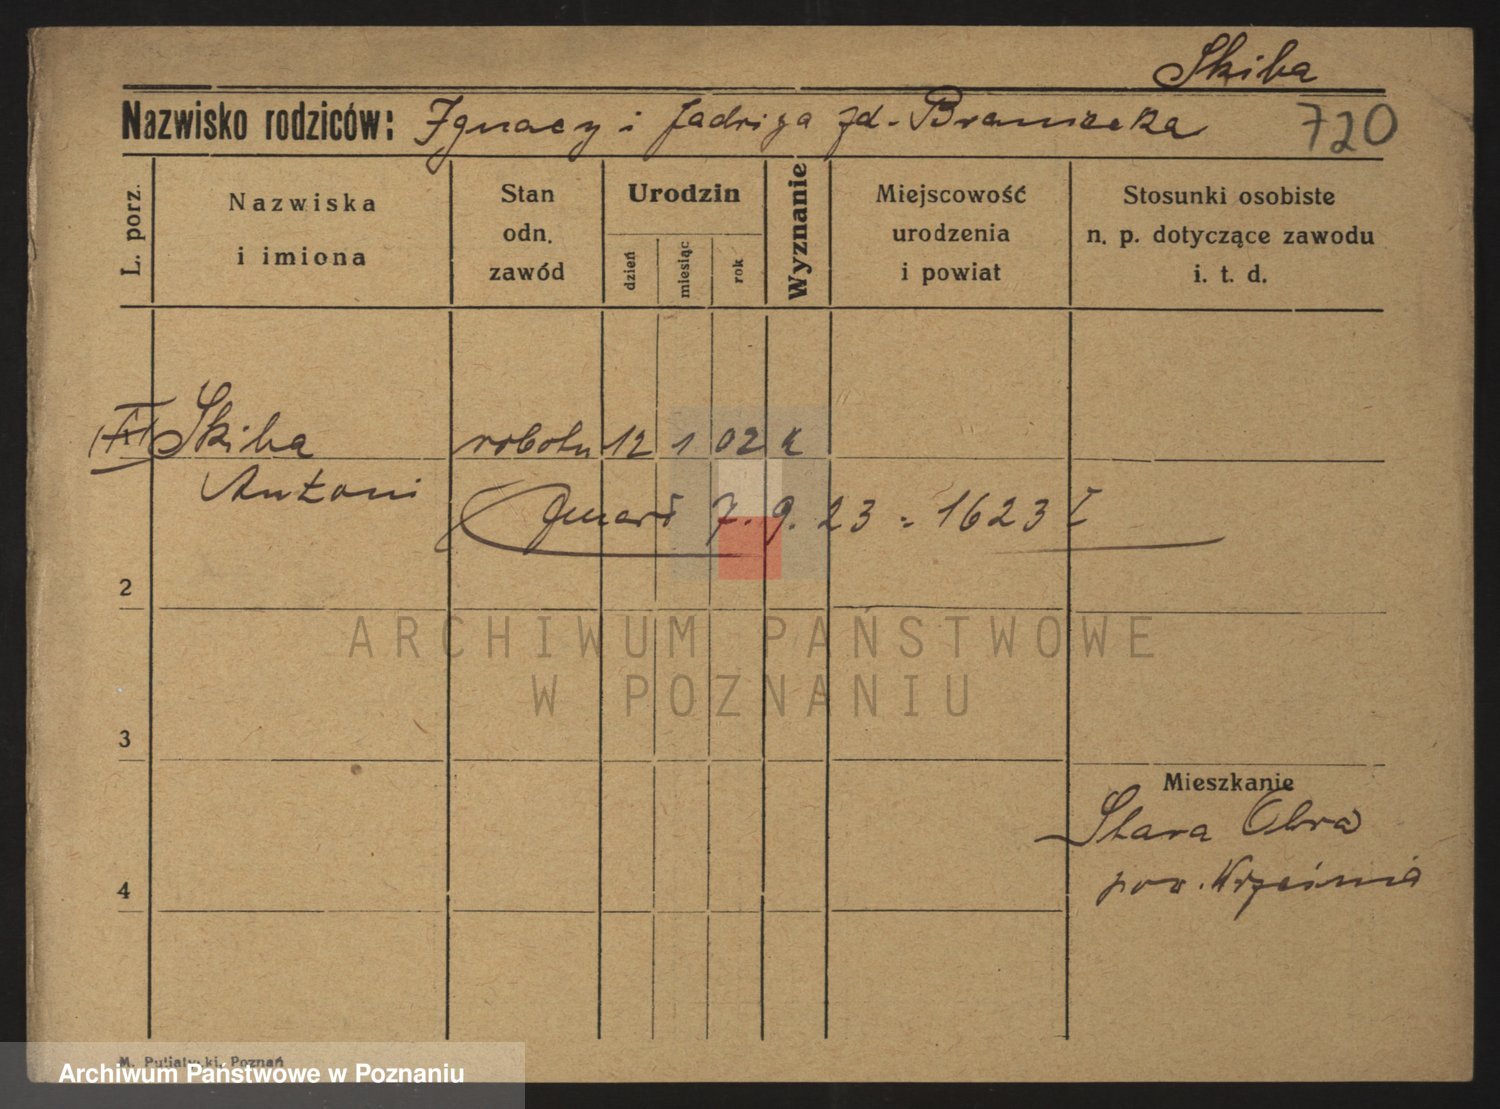 Skiba
Nazwisko rodziców: Ignacy i Jadwiga zd. Branicka
720
L. porz.
Nazwiska
i imiona
Stan
odn.
zawód
Urodzin
dzień
miesiąc
rok
Wyznanie
Miejscowość
urodzenia
i powiat
Stosunki osobiste
n. p. dotyczące zawodu
i. t. d.
Skiba robotn 12 1 02 k
Antoni
zmarł 7. 9. 23 = 1623 I
2
ARCHIWUM PAŃSTWOWE
W POZNANIU
3
Mieszkanie
Stara Obra
pow. Września
4
M. Putiatycki, Poznań
Archiwum Państwowe w Poznaniu